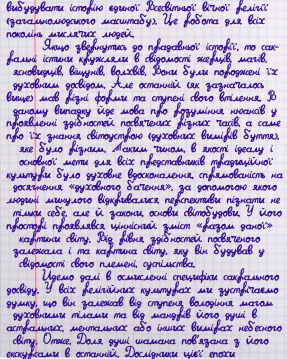 вибудувати історію єдиної Всесвітньої вічної релігії
(загальнолюдського масштабу). Це робота для всіх
поколінь мислячих людей.
Якщо звернутись до прадавньої історії, то сак-
ральні істини кружляли в свідомості жерців, магів,
ясновидців, віщунів, волхвів. Вони були породжені їх
духовним досвідом. Але останній (як зазначалось
вище) мав різні форми та ступені свого втілення. В
даному випадку йде мова про розуміння нюансів у
проявленні здібностей посвячених різних часів, а саме
про їх знання світоустрою (духовних вимірів буття),
яке було різним. Таким чином, в якості ідеалу і
основної мети для всіх представників традиційної
культури було духовне вдосконалення, спрямованість на
досягнення «духовного бачення», за допомогою якого
людині минулого відкривалися перспективи пізнати не
тільки себе, але й закони, основи світобудови. У його
просторі проявлявся ціннісний зміст «разом даної»
картини світу. Від рівня здібностей посвяченого
залежала і та картина світу, яку він будував у
свідомості свого племені, суспільства.
Щодо далі в осмисленні специфіки сакрального
досвіду. У всіх релігійних культурах ми зустрічаємо
думку, що він залежав від ступеня володіння магом
духовними тілами та від мандрів його душі в
астральних, ментальних або інших вимірах небесного
світу. Отже, Доля душі шамана пов'язана з його
екскурсами в останній. Дослідники цієї епохи